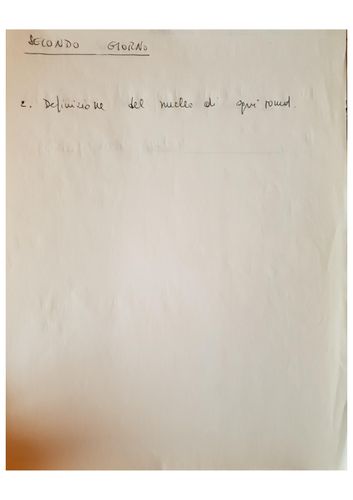 SECONDO GIORNO
2. Definizione del nucleo di ogni round.